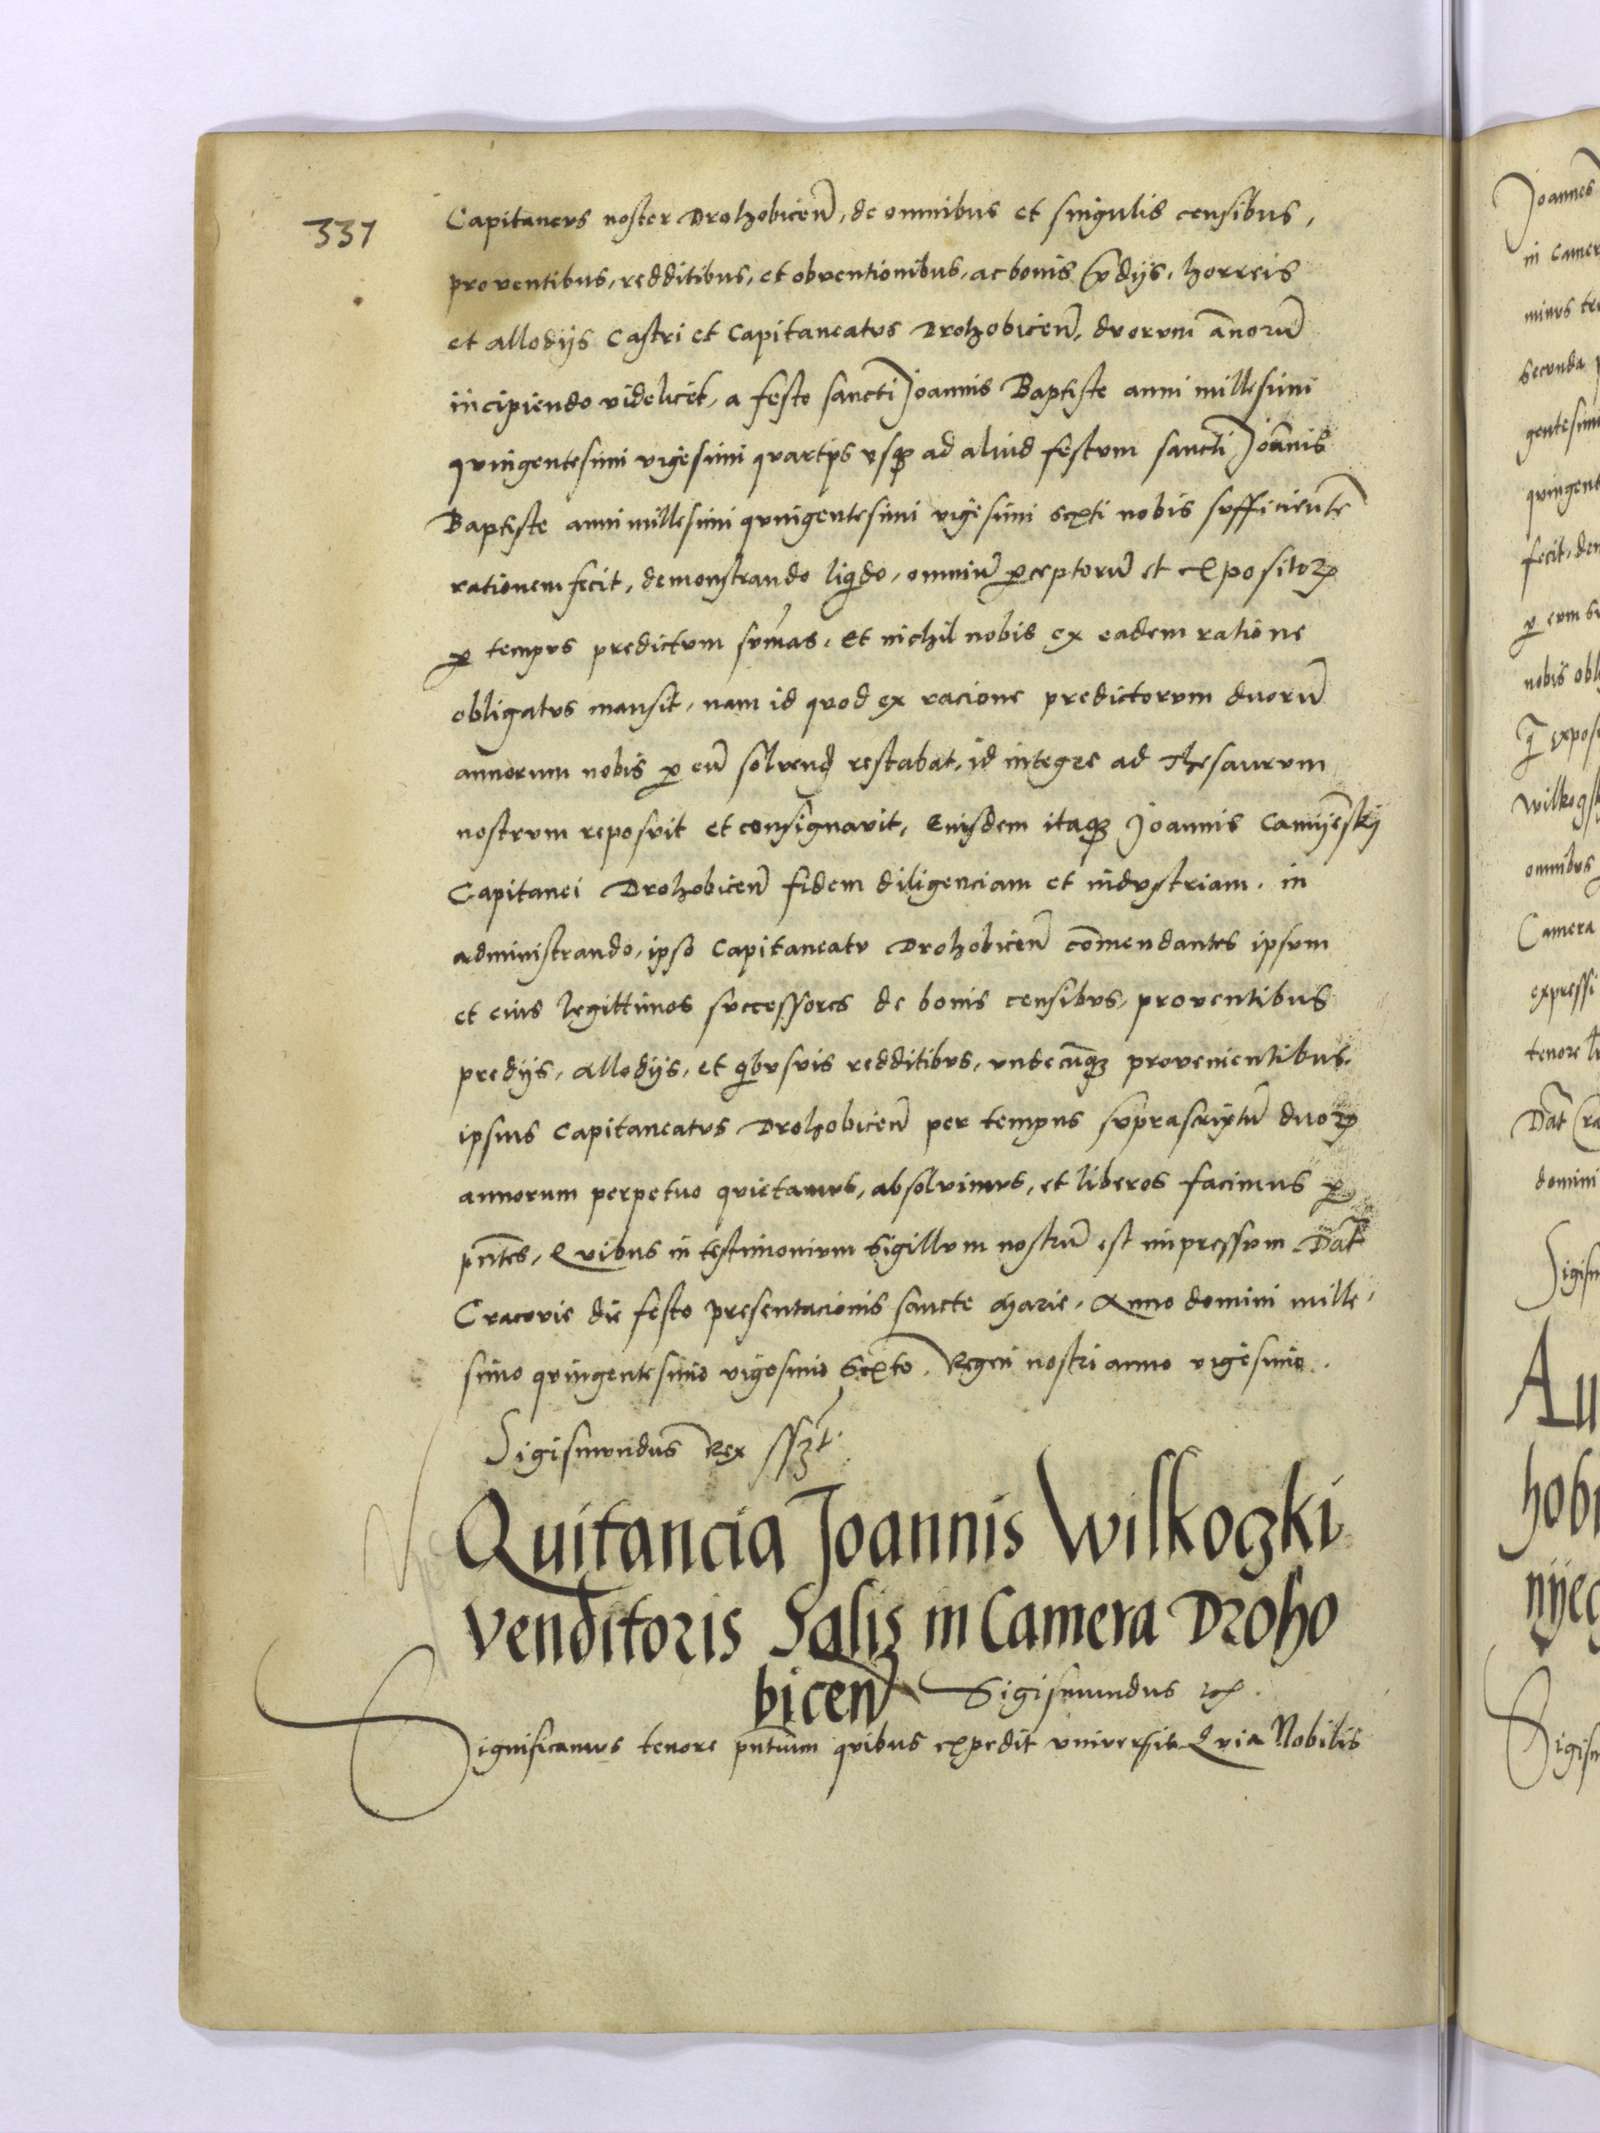 337
Capitaneus noster Drohobicen̄, de omnibus et singulis censibus,
proventibus, redditibus, et obventionibus, ac bonis p̄dijs, horreis
et allodijs Castri et Capitaneatus Drohobicen̄, duorum ānorū
incipiendo videlicet, a festo sancti Joannis Baptiste anni millesimi
quingentesimi vigesimi quarti usqꝫ ad aliud festum sancti Joānis
Baptiste anni millesimi quingentesimi vigesimi sexti nobis sufficientē
rationem fecit, demonstrando liqͥdo, omniū ꝑceptorū et expositoꝝ
ꝑ tempus predictum sum̄as, et nichil nobis ex eadem ratione
obligatus mansit, nam id quod ex racione predictorum duorū
annorum nobis ꝑ eū solvend̄ restabat, id integre ad Thesaurum
nostrum reposuit et consignavit, Eiusdem itaqꝫ Joannis Camijeñskij
Capitanei Drohobicen̄ fidem diligenciam et industriam, in
administrando, ipso Capitaneatu Drohobicen̄ com̄endantes ipsum
et eius legittimos successores de bonis censibus, proventibus
predijs, Allodijs, et qͥbusvis redditibus, undecūqꝫ provenientibus
ipsius Capitaneatus Drohobicen̄ per tempus suprascriptū duoꝝ
annorum perpetuo quietamus, absolvimus, et liberos facimus ꝑ
pn̄tes, Quibus in testimonium Sigillum nostrū est impressum Dat̄
Cracovie die festo presentacionis sancte Marie, Anno domini mille,
simo quingentesimo vigesimo Sexto, Regni nostri anno vigesimo.
Sigismundus Rex sszt.
Quitancia Joannis Wilkoczki
Venditoris Saliz in Camera Droho
bicen̄ Sigismundus rex.
Significamus tenore pn̄tium quibus expedit universis Quia Nobilis